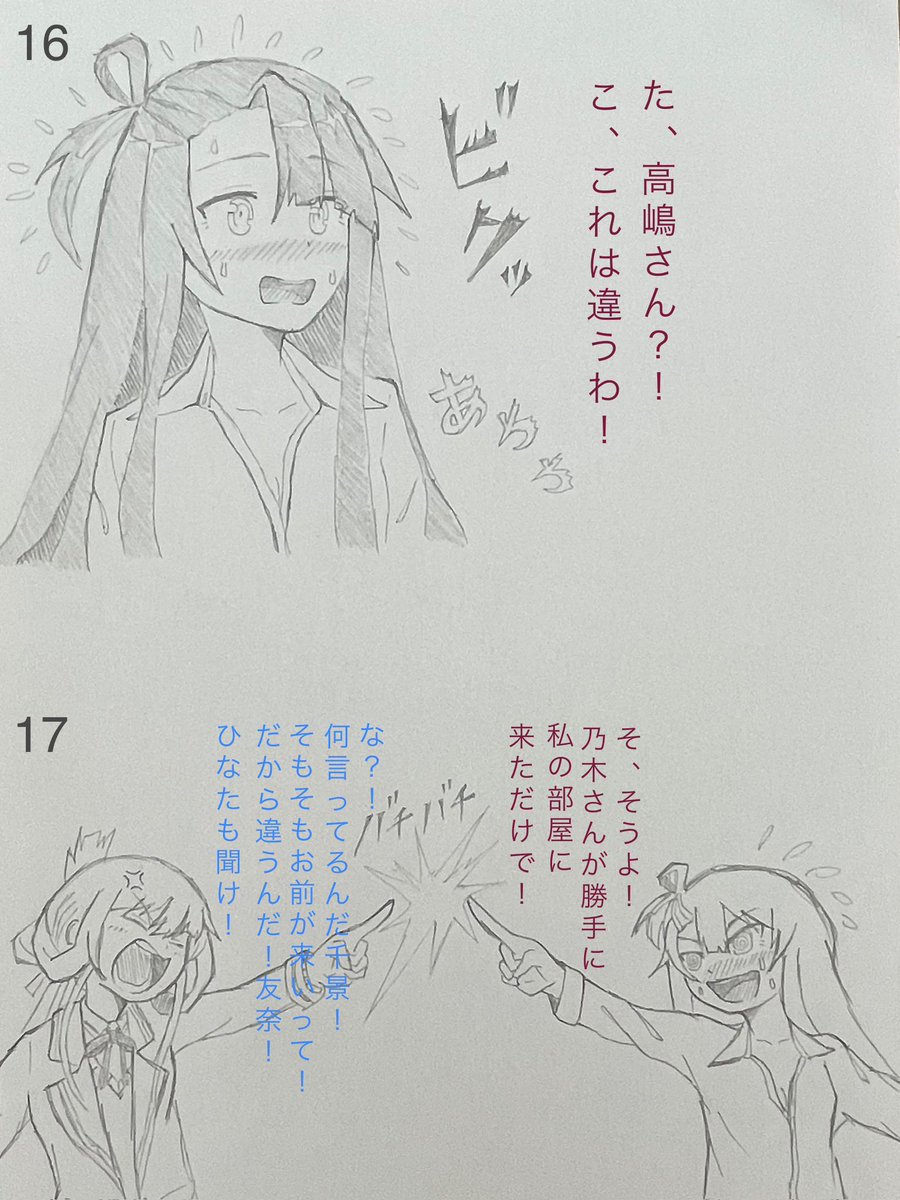 16
た、高嶋さん?!
こ、これは違うわ!
ビクッ
あわわ
17
そ、そうよ!
乃木さんが勝手に
私の部屋に
来ただけで!
バチバチ
な?!
何言ってるんだ千景!
そもそもお前が来いって!
だから違うんだ!友奈!
ひなたも聞け!